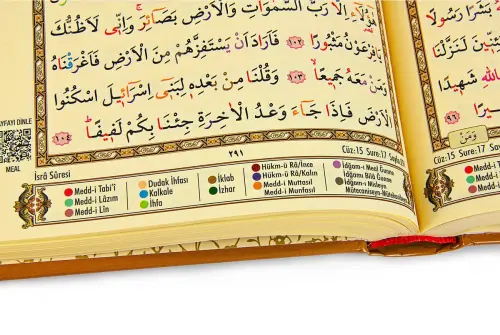 هٰٓؤُ۬لَٓاءِ اِلَّا رَبُّ السَّمٰوَاتِ وَالْاَرْضِ بَصَٓائِرَ وَاِنّ۪ي لَاَظُنُّكَ
يَا فِرْعَوْنُ مَثْبُورًا ﴿١٠٢﴾ فَاَرَادَ اَنْ يَسْتَفِزَّهُمْ مِنَ الْاَرْضِ فَاَغْرَقْنَاهُ
وَمَنْ مَعَهُ جَم۪يعًا ﴿١٠٣﴾ وَقُلْنَا مِنْ بَعْدِه۪ لِبَن۪ٓي اِسْرَٓائ۪يلَ اسْكُنُوا
الْاَرْضَ فَاِذَا جَٓاءَ وَعْدُ الْاٰخِرَةِ جِئْنَا بِكُمْ لَف۪يفًا ﴿١٠٤﴾
٢٩١
AYFAYI DİNLE
MEAL
İsrâ Sûresi
Cüz:15 Sure:17
Medd-i Tabi'î
Medd-i Lâzım
Medd-i Lîn
Dudak İhfası
Kalkale
İhfa
İklab
İzhar
Hükm-ü Râ/İnce
Hükm-ü Râ/Kalın
Medd-i Muttasıl
Medd-i Munfasıl
İdğam-ı Meal Gunne
İdğam-ı Bilâ Gunne
İdğam-ı Misleyn
بَشَرًا رَسُولًا
لَنَزَّلْنَا
شَه۪يدًا
٩٦
Cüz:15 Sure:17
Medd-i
Medd-i
Medd-i